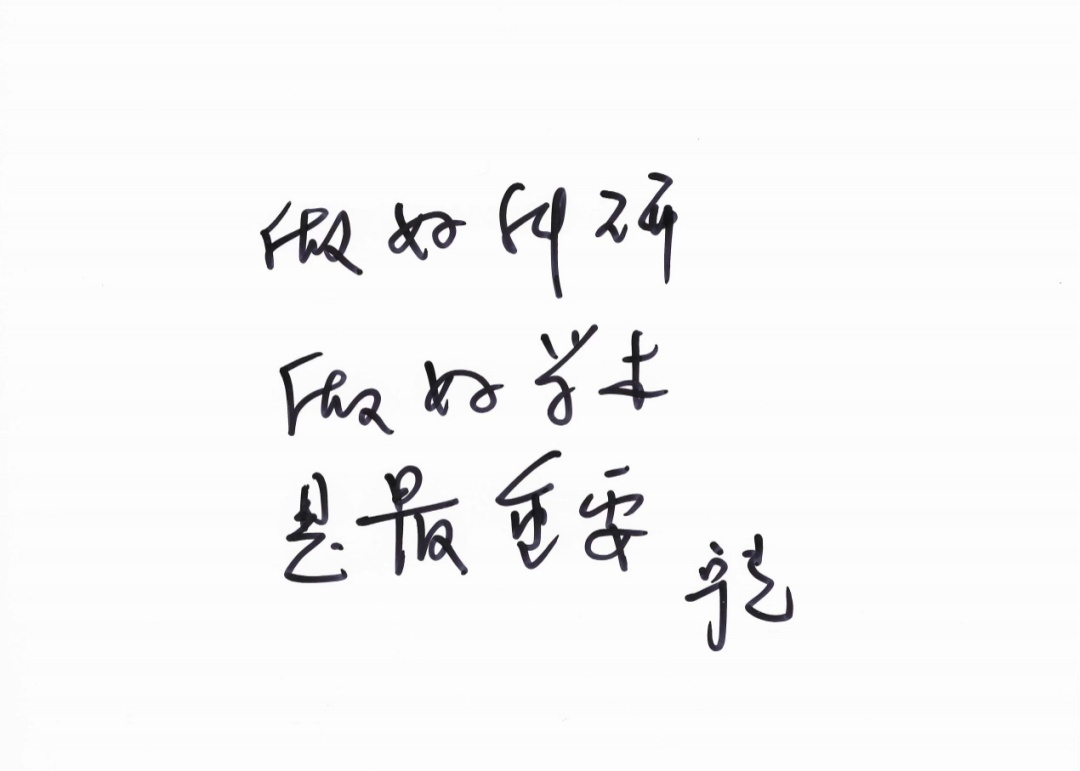 做好科研
做好学术
是最重要